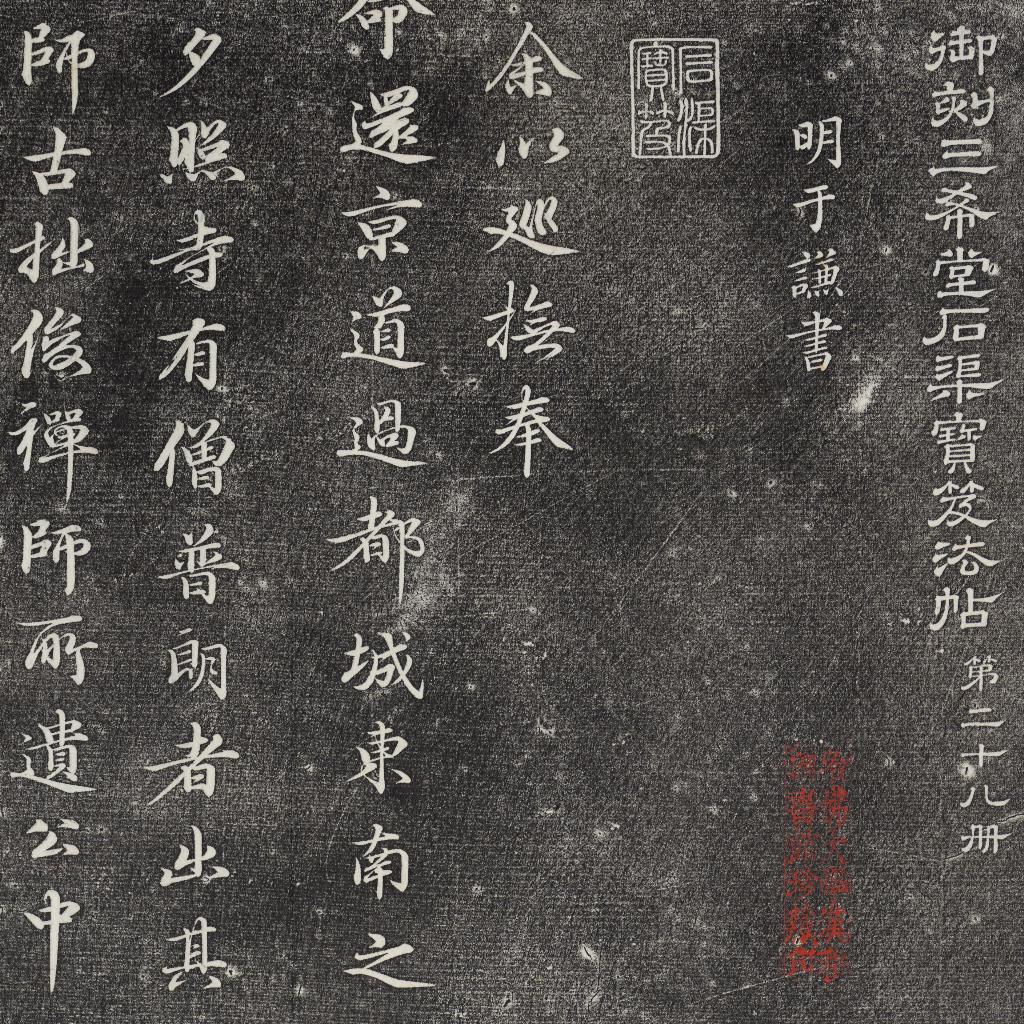 御刻三希堂石渠寶笈法帖 第二十八册
明于謙書
石渠
寶笈
余以巡撫奉
命還京道過都城東南之
夕照寺有僧普朗者出其
師古拙俊禪師所遺公中